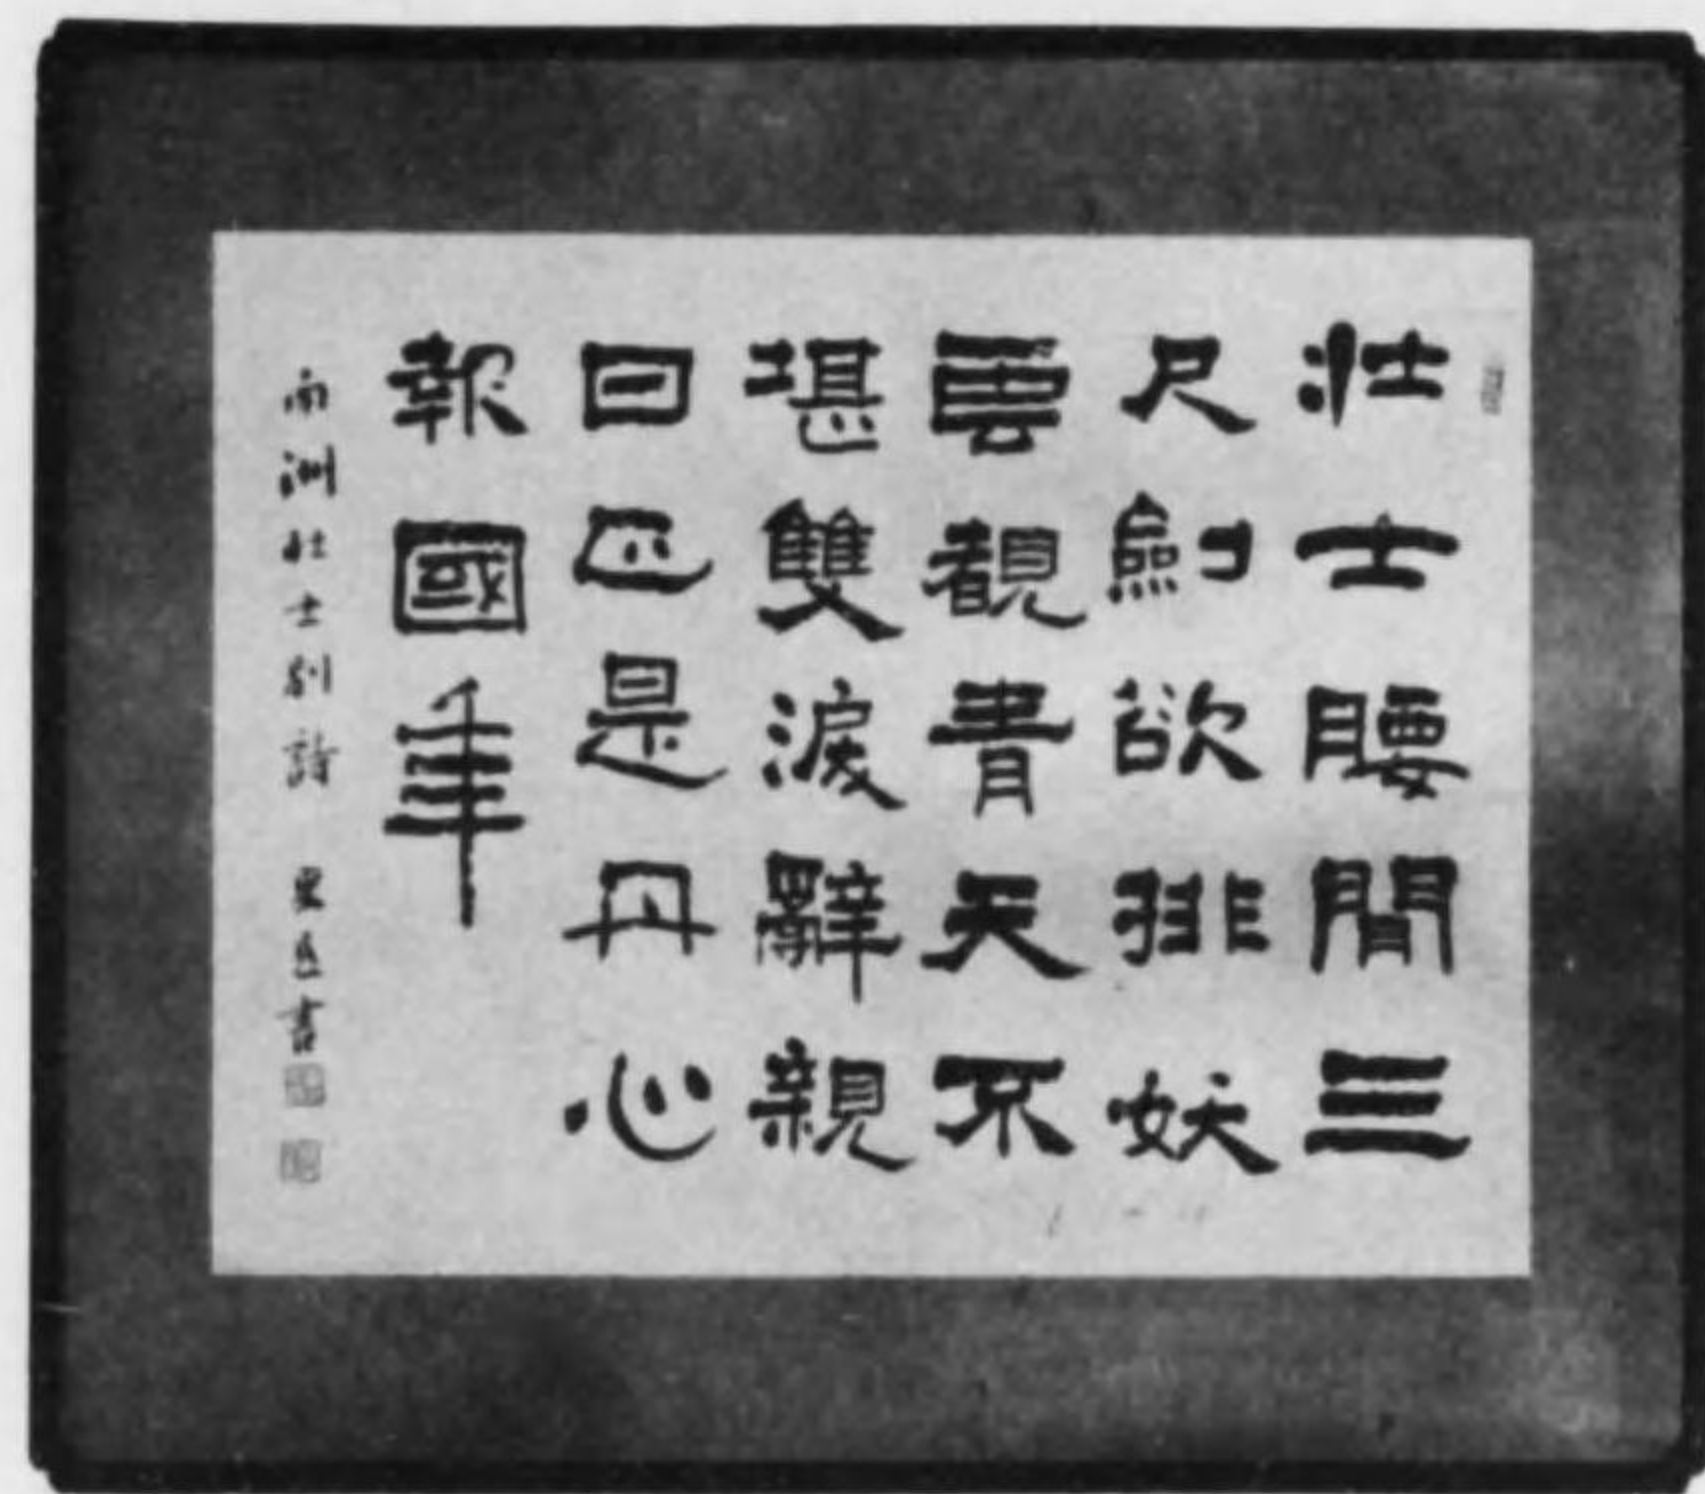 壮士腰間三
尺劍欲排妖
雲覩青天不
堪雙淚辭親
日正是丹心
報國年
南洲壮士別詩 東岳書